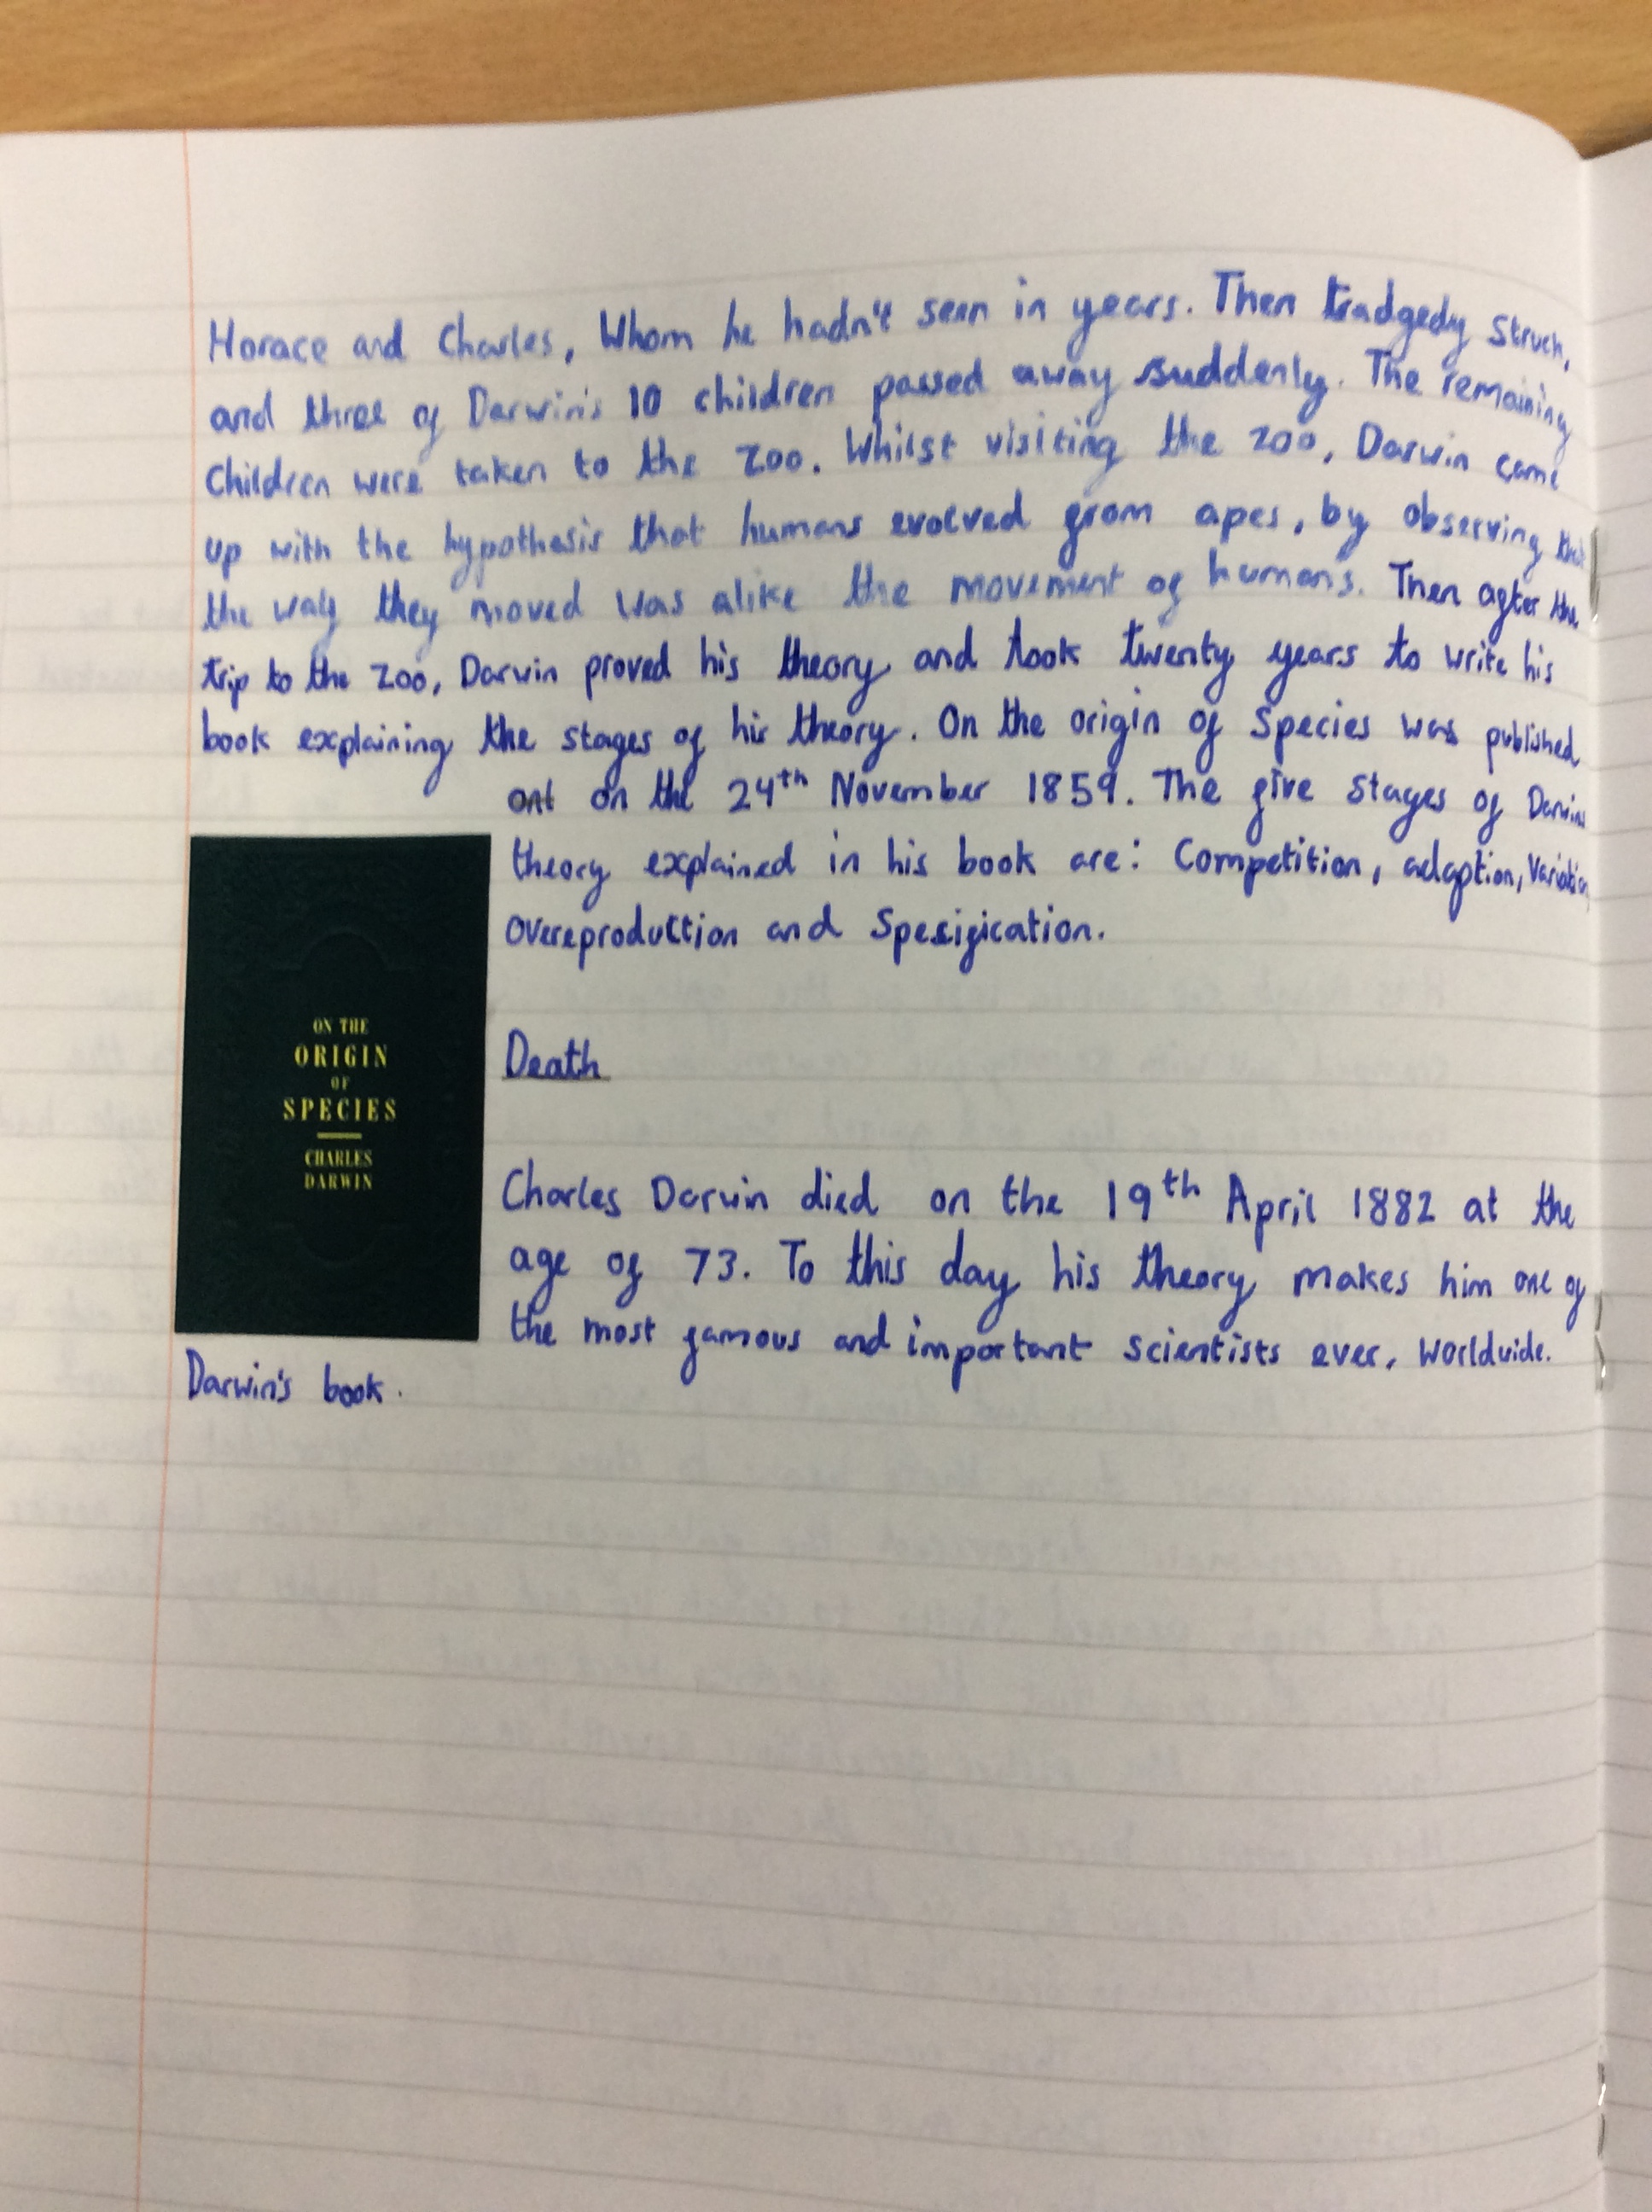 Horace and Charles, Whom he hadn't seen in years. Then tradgedy struck,
and three of Darwin's 10 children passed away suddenly. The remaining
Children were taken to the zoo. Whilst visiting the zoo, Darwin came
up with the hypothesis that humans evolved from apes, by observing that
the way they moved was alike the movement of humans. Then after the
trip to the zoo, Darwin proved his theory and took twenty years to write his
book explaining the stages of his theory. On the origin of Species was published
on the 24th November 1859. The five stages of Darwins
theory explained in his book are: Competition, adaption, Variation,
Overeproduction and Spesification.
ON THE
ORIGIN
OF
SPECIES
CHARLES
DARWIN
Darwin's book.
Death
Charles Darwin died on the 19th April 1882 at the
age of 73. To this day his theory makes him one of
the most famous and important scientists ever, worldwide.